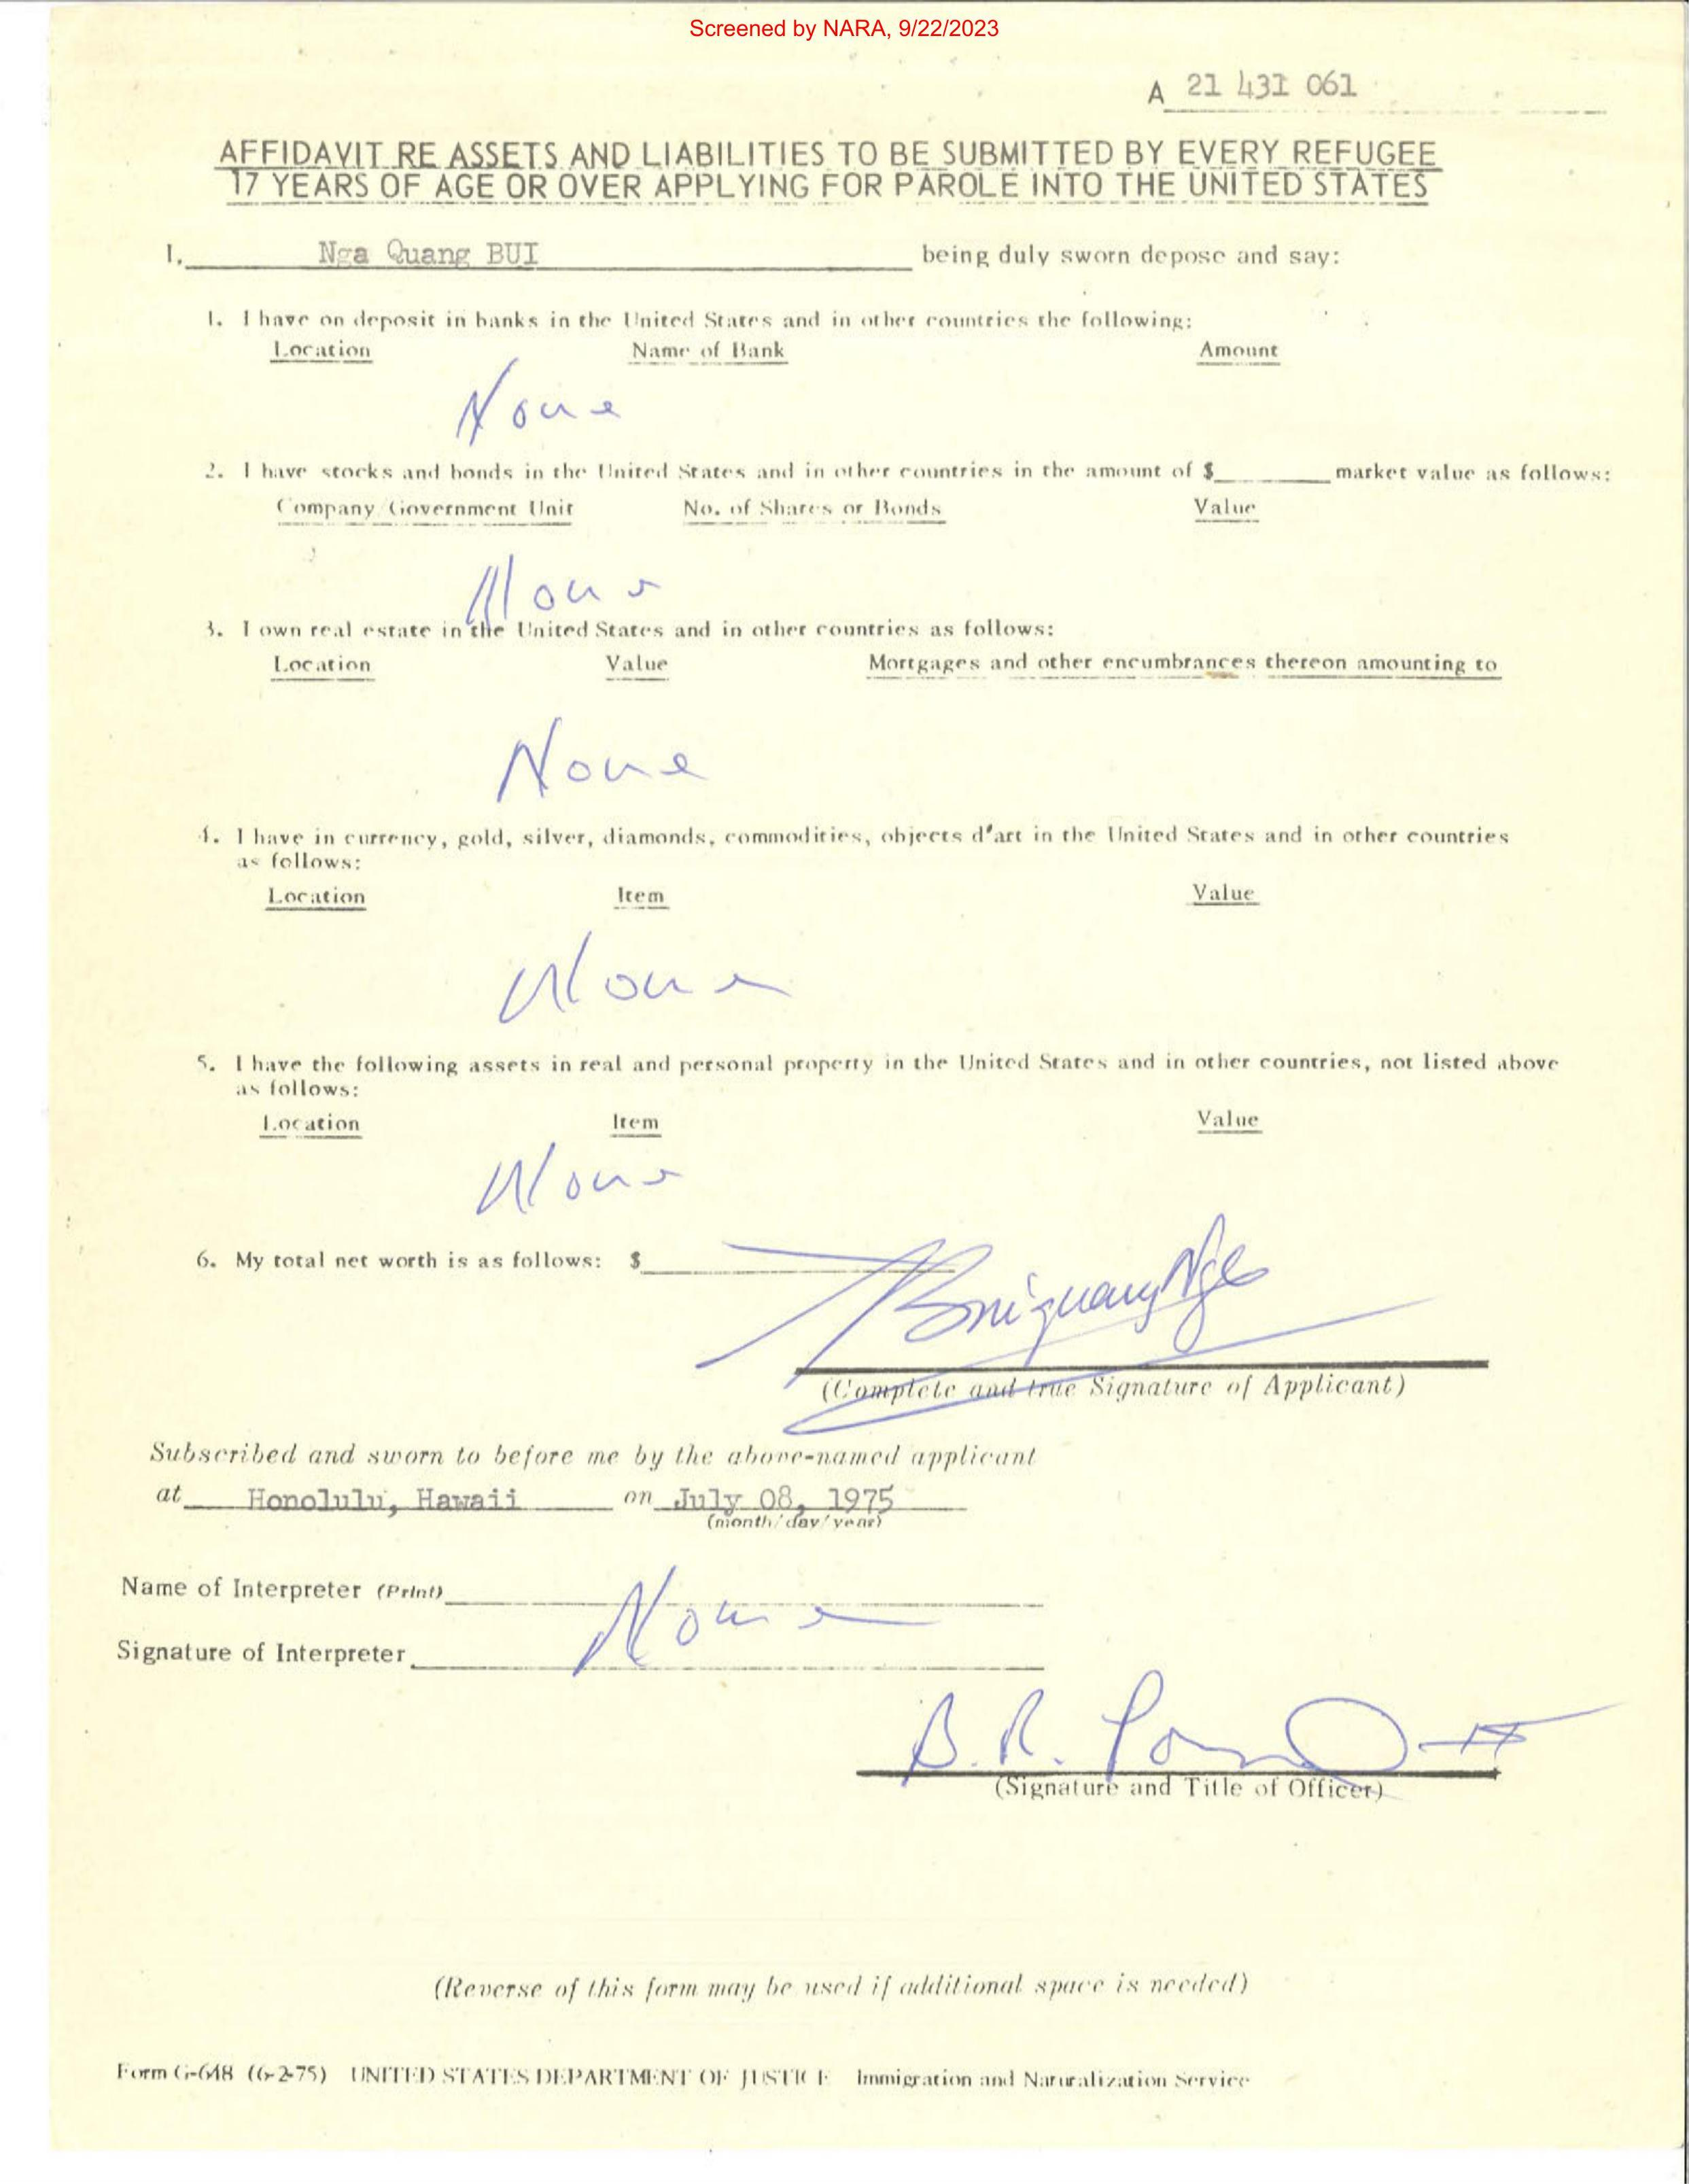 Screened by NARA, 9/22/2023
A 21 431 061
AFFIDAVIT RE ASSETS AND LIABILITIES TO BE SUBMITTED BY EVERY REFUGEE
17 YEARS OF AGE OR OVER APPLYING FOR PAROLE INTO THE UNITED STATES
I, Nga Quang BUI being duly sworn depose and say:
1. I have on deposit in banks in the United States and in other countries the following:
Location Name of Bank Amount
None
2. I have stocks and bonds in the United States and in other countries in the amount of $ market value as follows:
Company/Government Unit No. of Shares or Bonds Value
None
3. I own real estate in the United States and in other countries as follows:
Location Value Mortgages and other encumbrances thereon amounting to
None
4. I have in currency, gold, silver, diamonds, commodities, objects d'art in the United States and in other countries
as follows:
Location Item Value
None
5. I have the following assets in real and personal property in the United States and in other countries, not listed above
as follows:
Location Item Value
None
6. My total net worth is as follows: $
Buiquang Nga
(Complete and true Signature of Applicant)
Subscribed and sworn to before me by the above-named applicant
at Honolulu, Hawaii on July 08, 1975
(month/day/year)
Name of Interpreter (Print)
None
Signature of Interpreter
B.R.
(Signature and Title of Officer)
(Reverse of this form may be used if additional space is needed)
Form G-648 (6-2-75) UNITED STATES DEPARTMENT OF JUSTICE Immigration and Naturalization Service